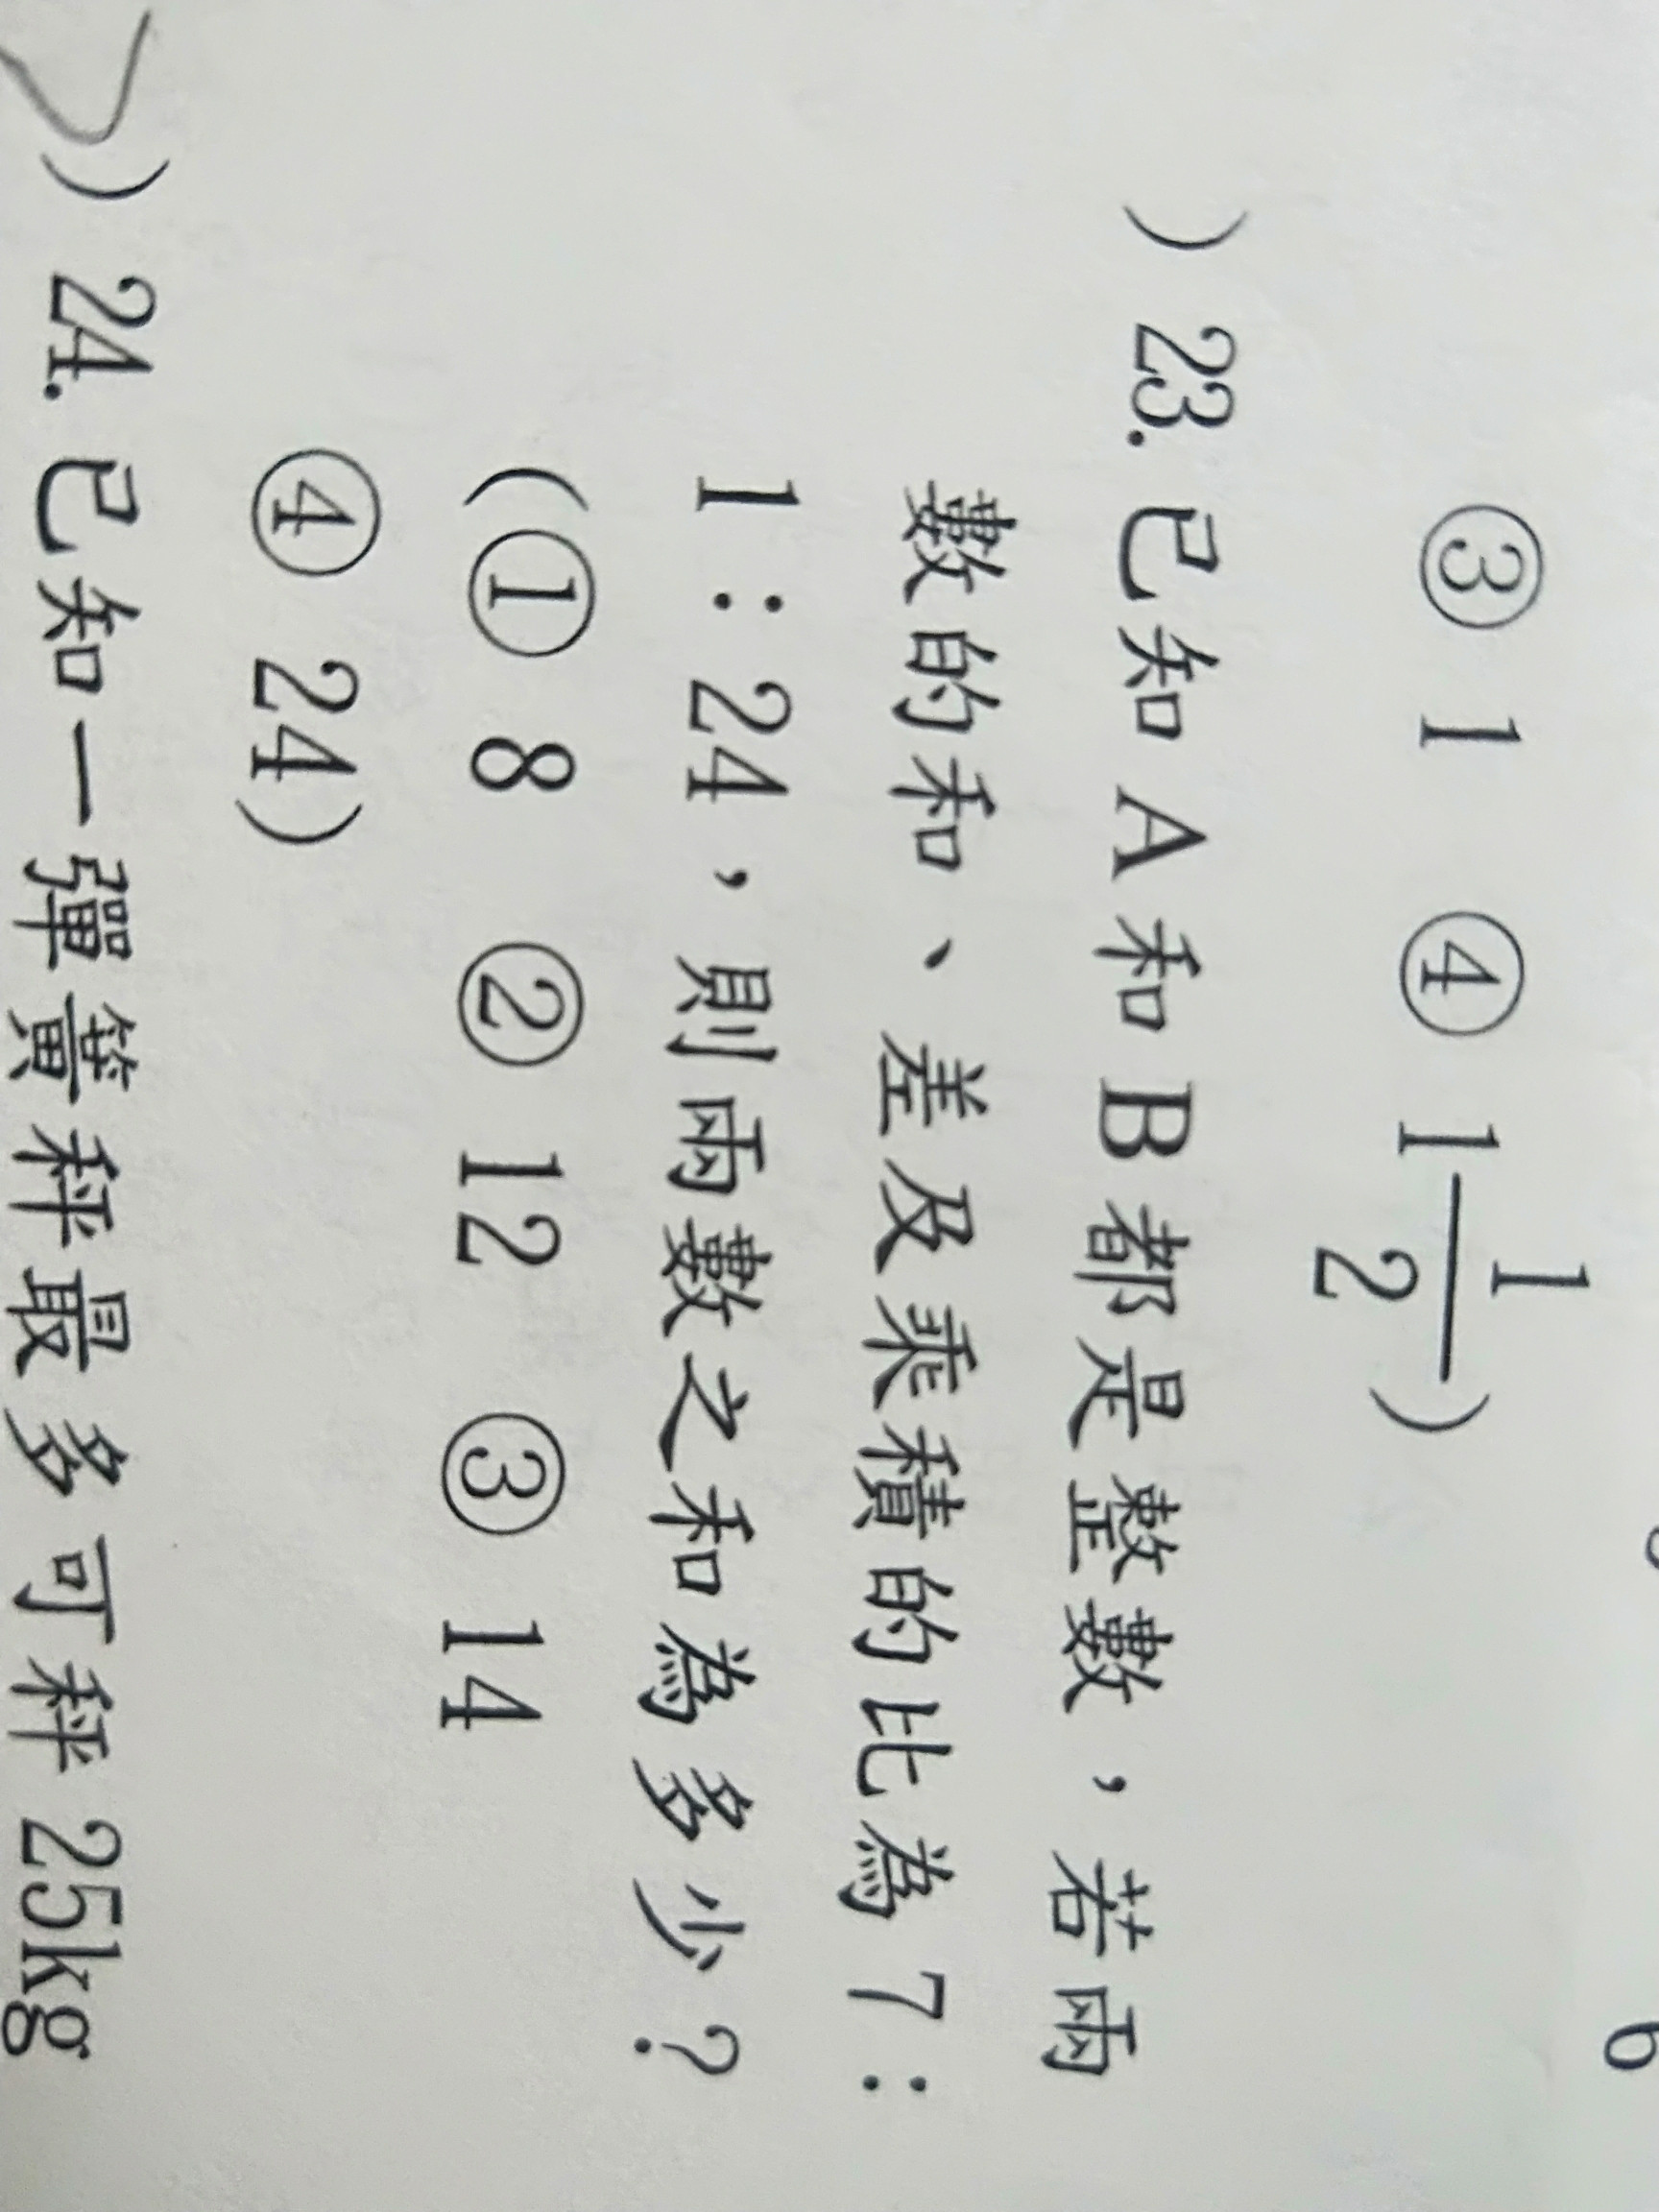 ③ 1 ④ 1 1/2)
) 23. 已知 A 和 B 都是整數,若兩
數的和、差及乘積的比為 7:
1:24,則兩數之和為多少?
(① 8 ② 12 ③ 14
④ 24)
) 24. 已知一彈簧秤最多可秤 25kg